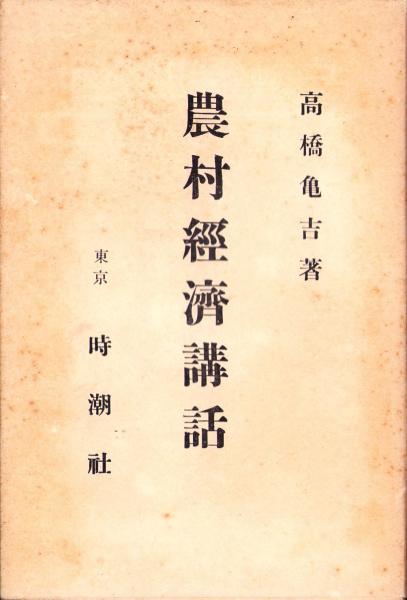 高橋亀吉著
農村經濟講話
東京 時潮社